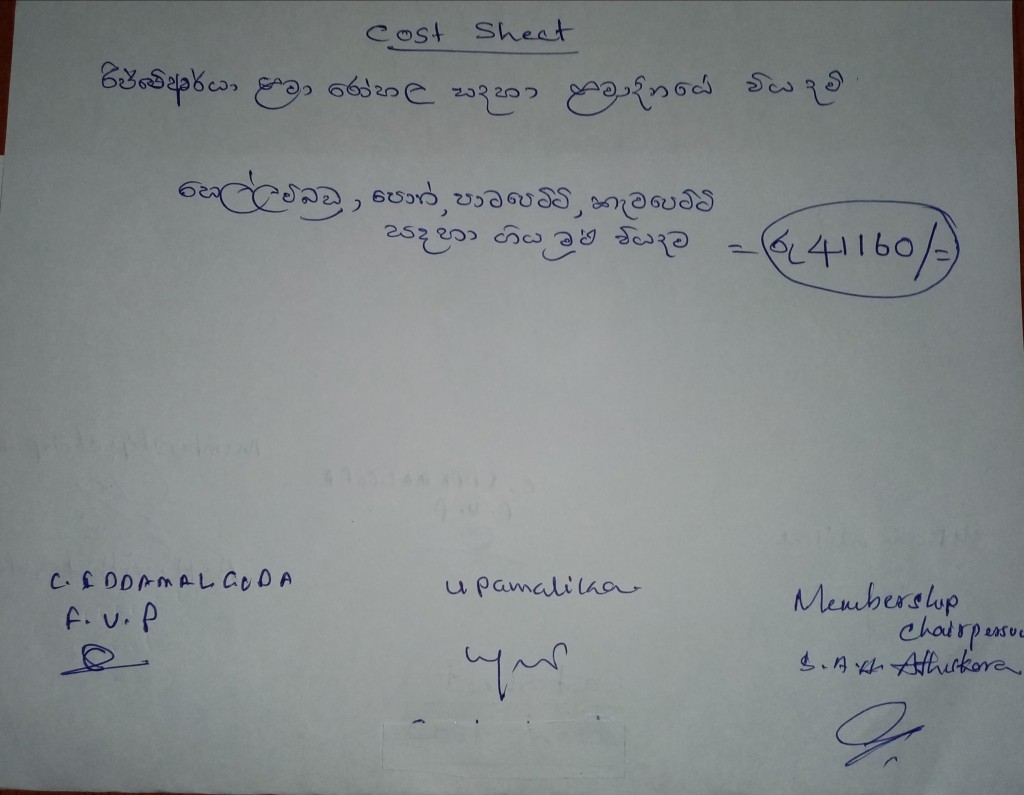 Cost Sheet
රිජ්වේආර්යා ළමා රෝහල සඳහා ළමාදිනයේ වියදම්
සෙල්ලම්බඩු, පොත්, පාටපෙට්ටි, කෑමපෙට්ටි
සඳහා ගිය මුළු වියදම = රු 41160/=
C. EDDAMALGODA
F. V. P
Upamalika
Membership
Chairperson
S. A. H. Athukora